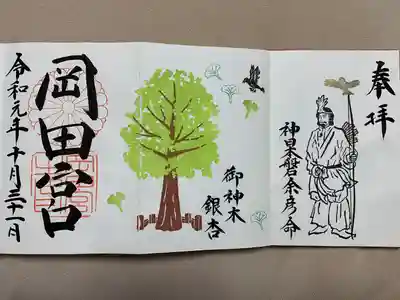 奉拝
神日本磐余彦命
御神木
銀杏
岡田宮
令和元年十月三十一日